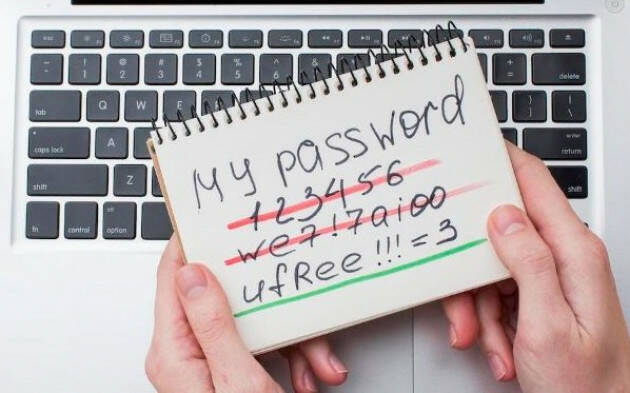 esc
~ ! @ # $ % ^ & + delete
` 1 2 3 4 5 6 =
tab Q W E } |
] \
caps lock A enter
return
shift Z shift
fn control alt
option
My password
123456
we7!7aioo
ufRee!!!=3